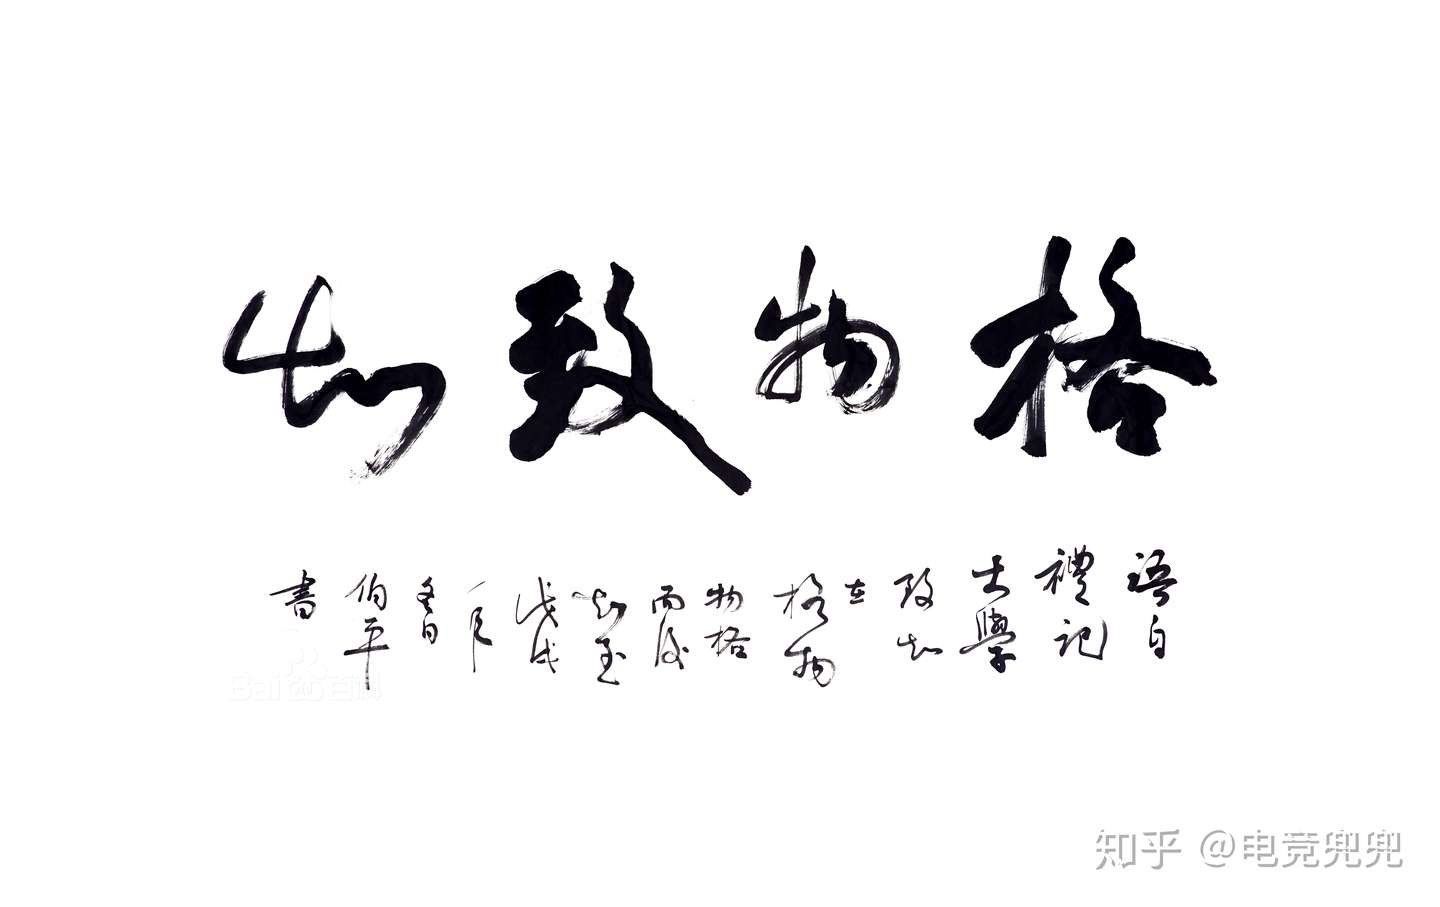 格物致知
語自
禮記
大學
致知
在
格物
物格
而後
知至
戊戌
一月
冬日
伯平
書
Bai 百科
知乎 @电竞兜兜